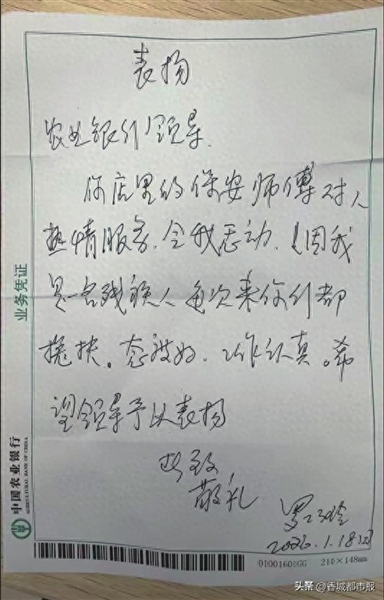 表扬
农业银行领导.
你店里的保安师傅对人
热情服务.令我感动.(因我
是一名残疾人每次来你们都
搀扶。态度好.工作认真。希
望领导予以表扬
此致
敬礼
罗
2026.1.18日
业务凭证
中国农业银行
AGRICULTURAL BANK OF CHINA
01001600GG 210×148mm
头条 @香城都市报